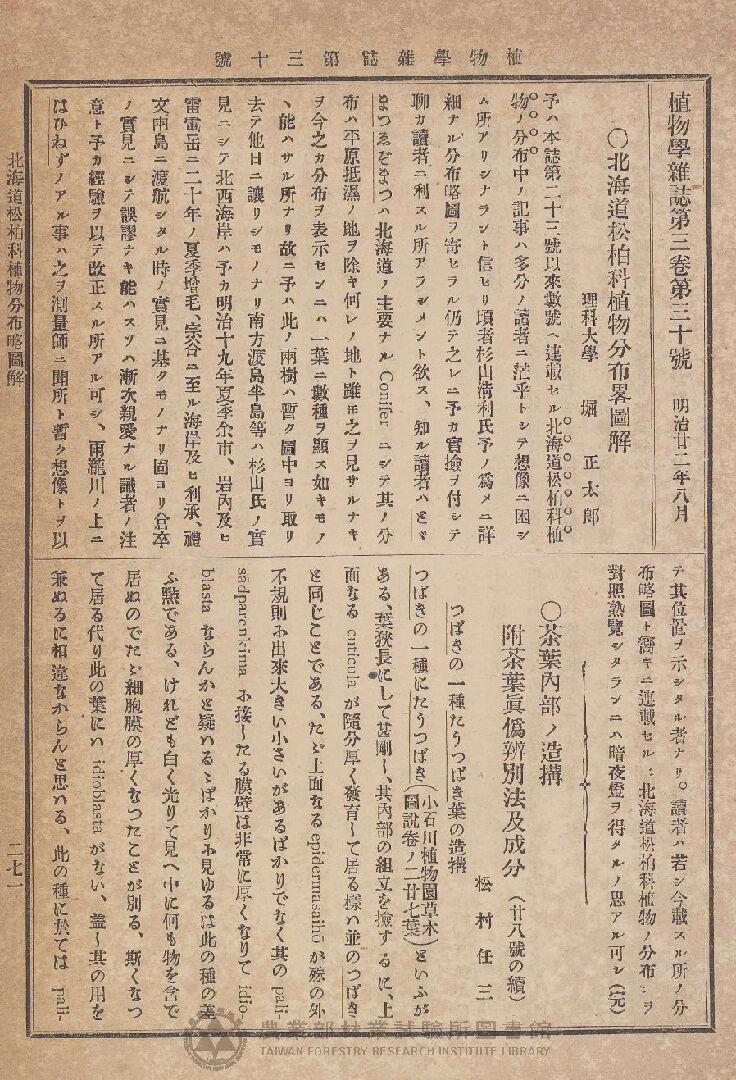 植物學雜誌第三十號
植物學雜誌第三卷第三十號　明治廿二年八月
〇北海道松柏科植物分布畧圖解
理科大學　堀　正太郎
予ハ本誌第二十三號以來數號ヘ連載セル北海道松柏科植
物ノ分布中ノ記事ハ多分ノ讀者ニ茫乎トシテ想像ニ困シ
ム所アリシナラント信セリ頃者杉山淸利氏予ノ爲メニ詳
細ナル分布略圖ヲ寄セラル仍テ之レニ予カ實撿ヲ付シテ
聊カ讀者ニ利スル所アラシメント欲ス、知ル讀者ハとゞ
まつゑぞまつハ北海道ノ主要ナル Conifer ニシテ其ノ分
布ハ平原抵濕ノ地ヲ除キ何レノ地ト雖モ之ヲ見サルナキ
ヲ今之カ分布ヲ表示センニハ一葉ニ數種ヲ顯ス如キモノ
ヽ能ハサル所ナリ故ニ予ハ此ノ兩樹ハ暫ク圖中ヨリ取リ
去テ他日ニ讓リシモノナリ南方渡島半島等ハ杉山氏ノ實
見ニシテ北西海岸ハ予カ明治十九年夏季余市、岩內及ヒ
雷電岳ニ二十年ノ夏季增毛、宗谷ニ至ル海岸及ヒ利承、禮
文兩島ニ渡航シタル時ノ實見ニ基クモノナリ固ヨリ倉卒
ノ實見ニシテ誤謬ナキ能ハスソハ漸次親愛ナル識者ノ注
意ト予カ經驗ヲ以テ改正スル所アル可シ、雨瀧川ノ上ニ
はひねずノアル事ハ之ヲ測量師ニ聞所ト暫ク想像トヲ以
テ其位置ヲ示シタル者ナリ。讀者ハ若シ今載スル所ノ分
布略圖ト嚮キニ連載セル北海道松柏科植物ノ分布トヲ
對照熟覽シタランニハ暗夜燈ヲ得タルノ思アル可シ（完）
〇茶葉內部ノ造搆
附茶葉眞僞辨別法及成分（廿八號の續）
松村任三
つばきの一種たうつばき葉の造搆
つばきの一種にたうつばき（小石川植物園草木圖說卷ノ二廿七葉）といふが
ある、葉狹長にして甚剛し、其內部の組立を撿するに、上
面なる cuticula が隨分厚く發育して居る樣ハ並のつばき
と同じことである、たゞ上面なる epidermasaiho が殊の外
不規則に出來大きい小さいがあるばかりでなく其の pali-
sädparenkima に接したる膜壁は非常に厚くなりて idio-
blasta ならんかと疑ハるゝばかりに見ゆるは此の種の差
ふ點である、けれども白く光りて見へ中に何も物を含で
居ぬのでたゞ細胞膜の厚くなつたことが別る、斯くなつ
て居る代り此の葉にハ idioblasta がない、蓋し其の用を
兼ぬるに相違なからんと思ハる、此の種に於ては pali-
北海道松柏科植物分布略圖解
二七一
農業部林業試驗所圖書館
TAIWAN FORESTRY RESEARCH INSTITUTE LIBRARY